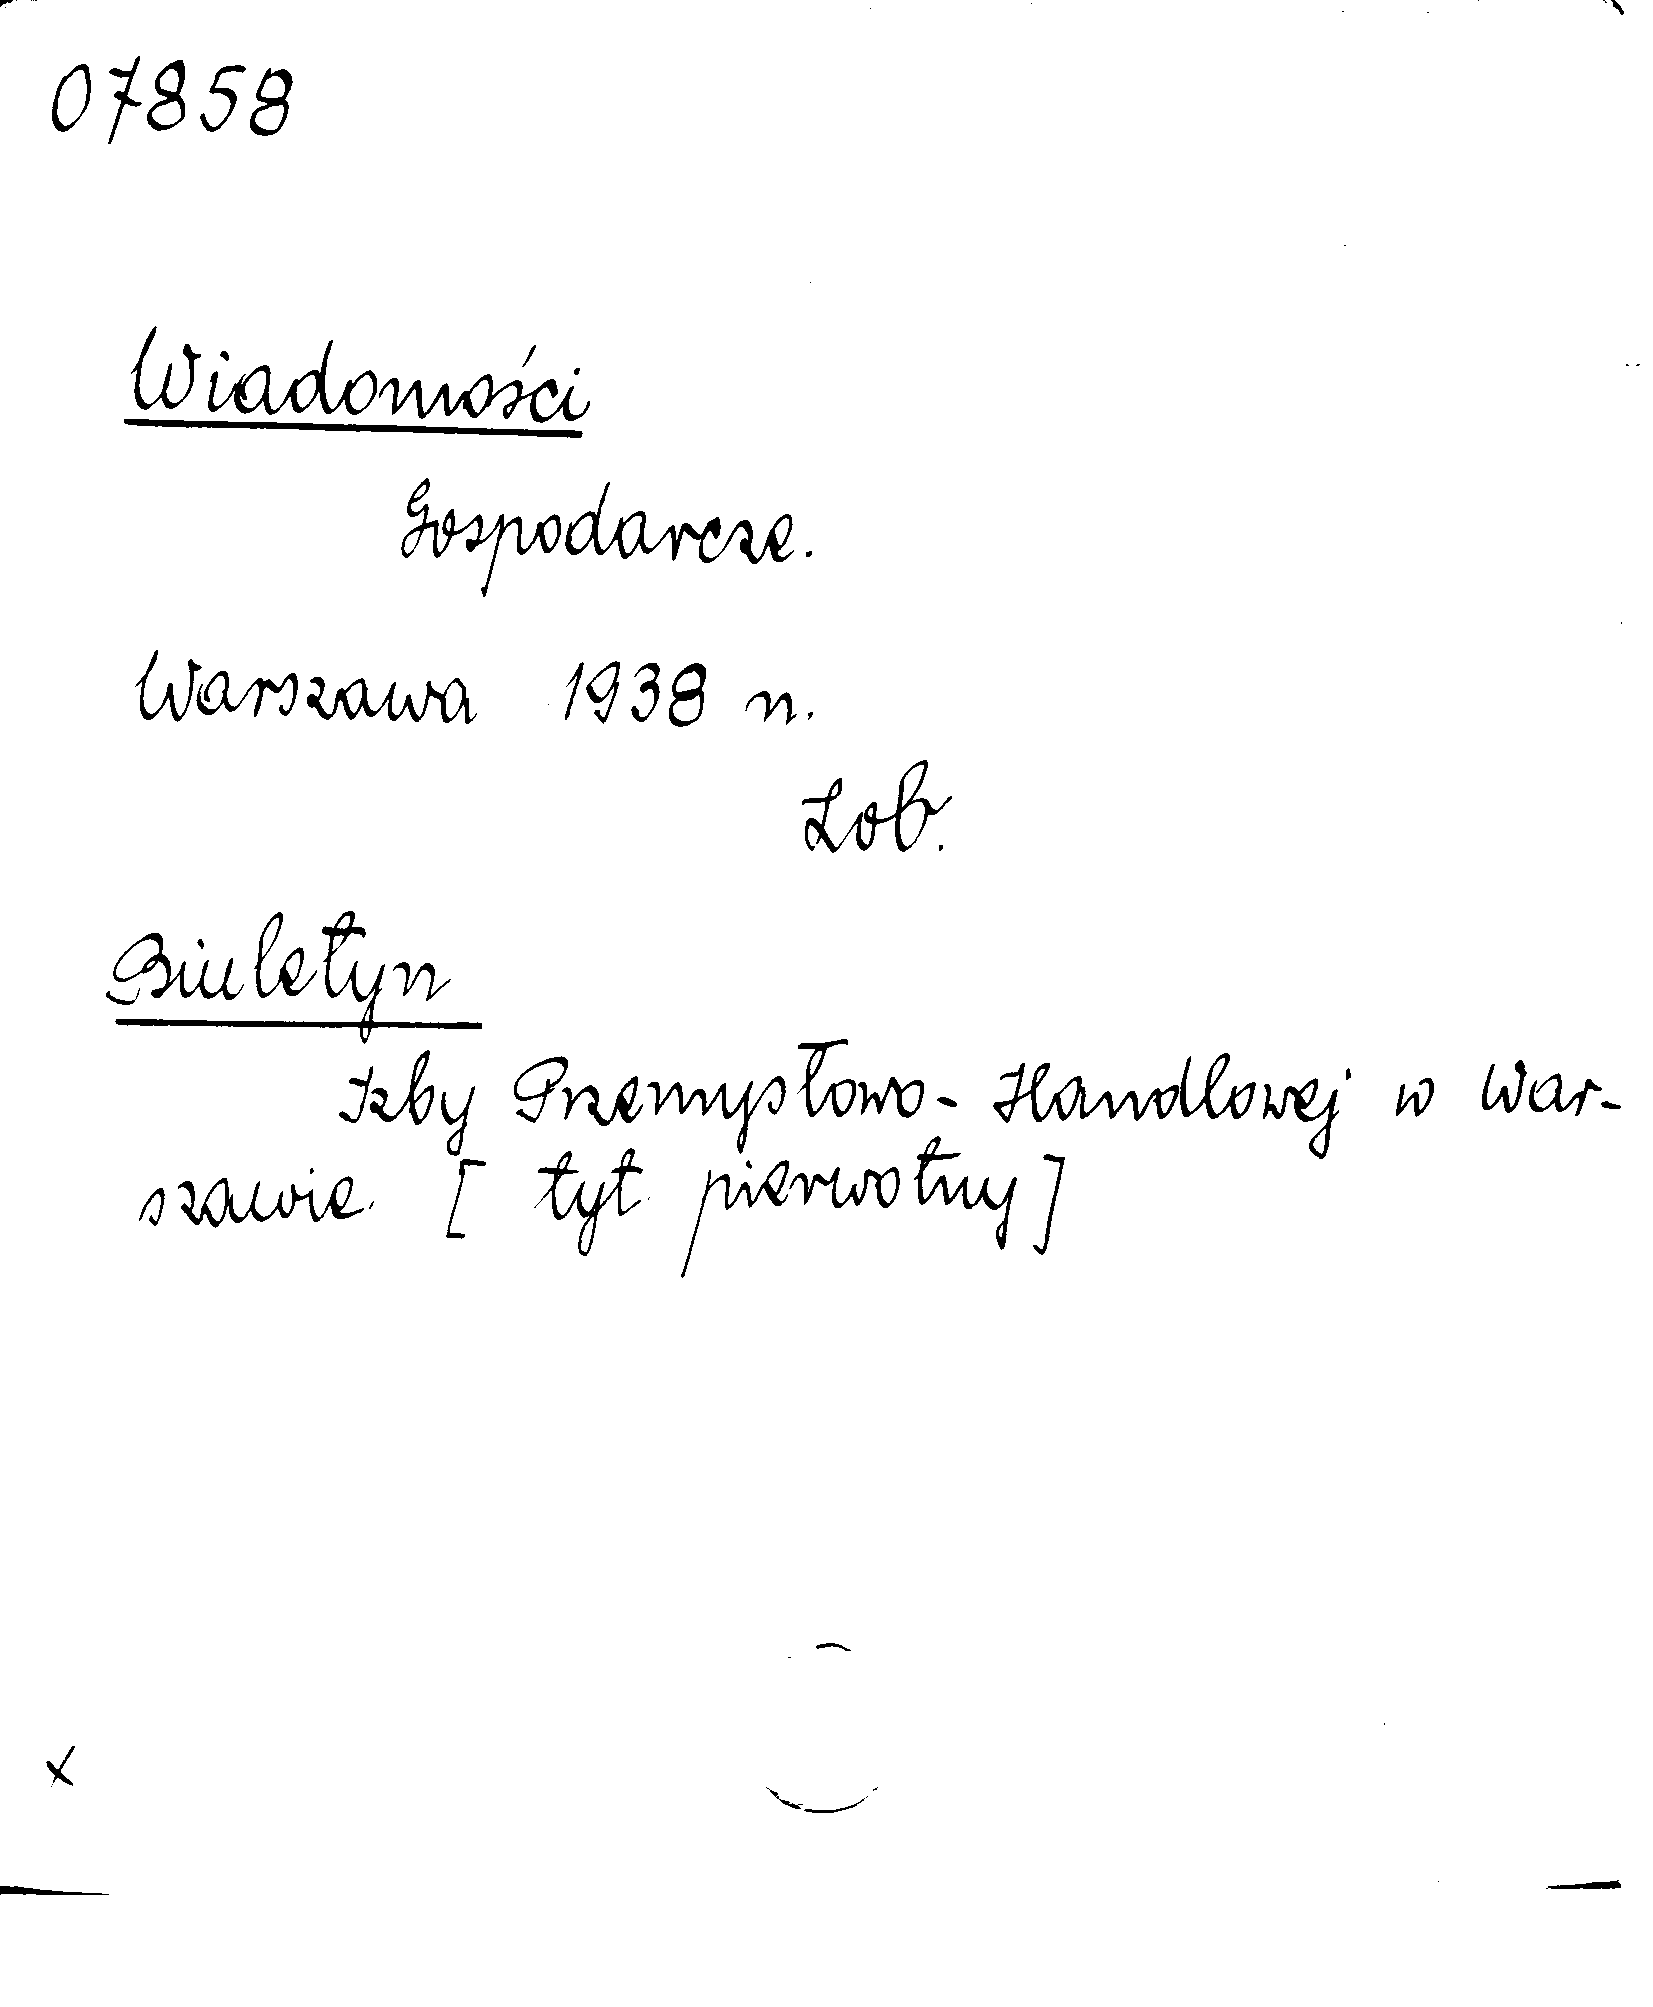 07858
Wiadomości
Gospodarcze.
Warszawa 1938 n.
Zob.
Biuletyn
Izby Przemysłowo-Handlowej w War-
szawie. [tyt. pierwotny]
x